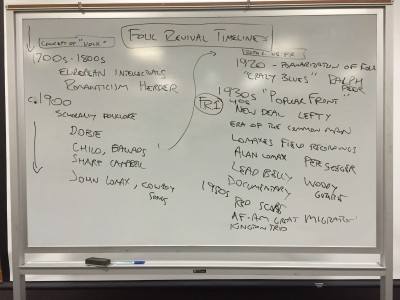 FOLK REVIVAL TIMELINE
CONCEPT OF "FOLK"
1700s - 1800s
EUROPEAN INTELLECTUALS
ROMANTICISM HERDER
c. 1900
SCHOLARLY FOLKLORE
DOBIE
CHILD, BALLADS
SHARP CAMPBELL
JOHN LOMAX, COWBOY
SONGS
1920 - POPULARIZATION OF FOLK
"CRAZY BLUES" RALPH
PEER
FRI
1930s "POPULAR FRONT"
40s
NEW DEAL LEFTY
ERA OF THE COMMON MAN
LOMAXES FIELD RECORDINGS
ALAN LOMAX PETE SEEGER
LEAD BELLY WOODY
GUTHRIE
DOCUMENTARY
1950s RED SCARE
AF-AM GREAT MIGRATION
KINGSTON TRIO